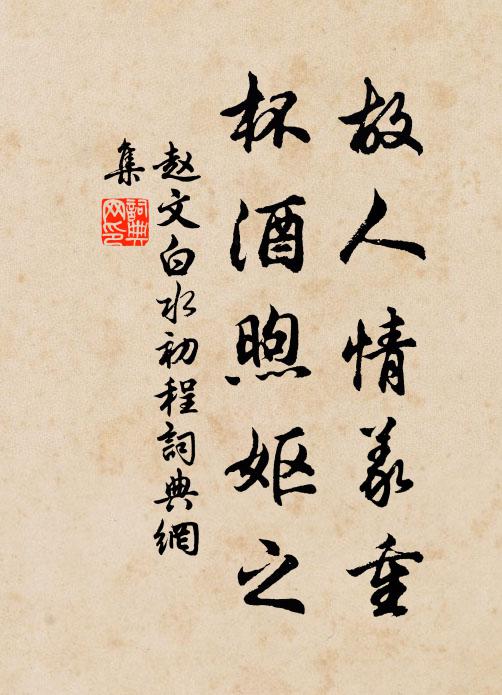 故人情義重
杯酒煦妪之
赵文白水初程詞典網
集
詞典网印